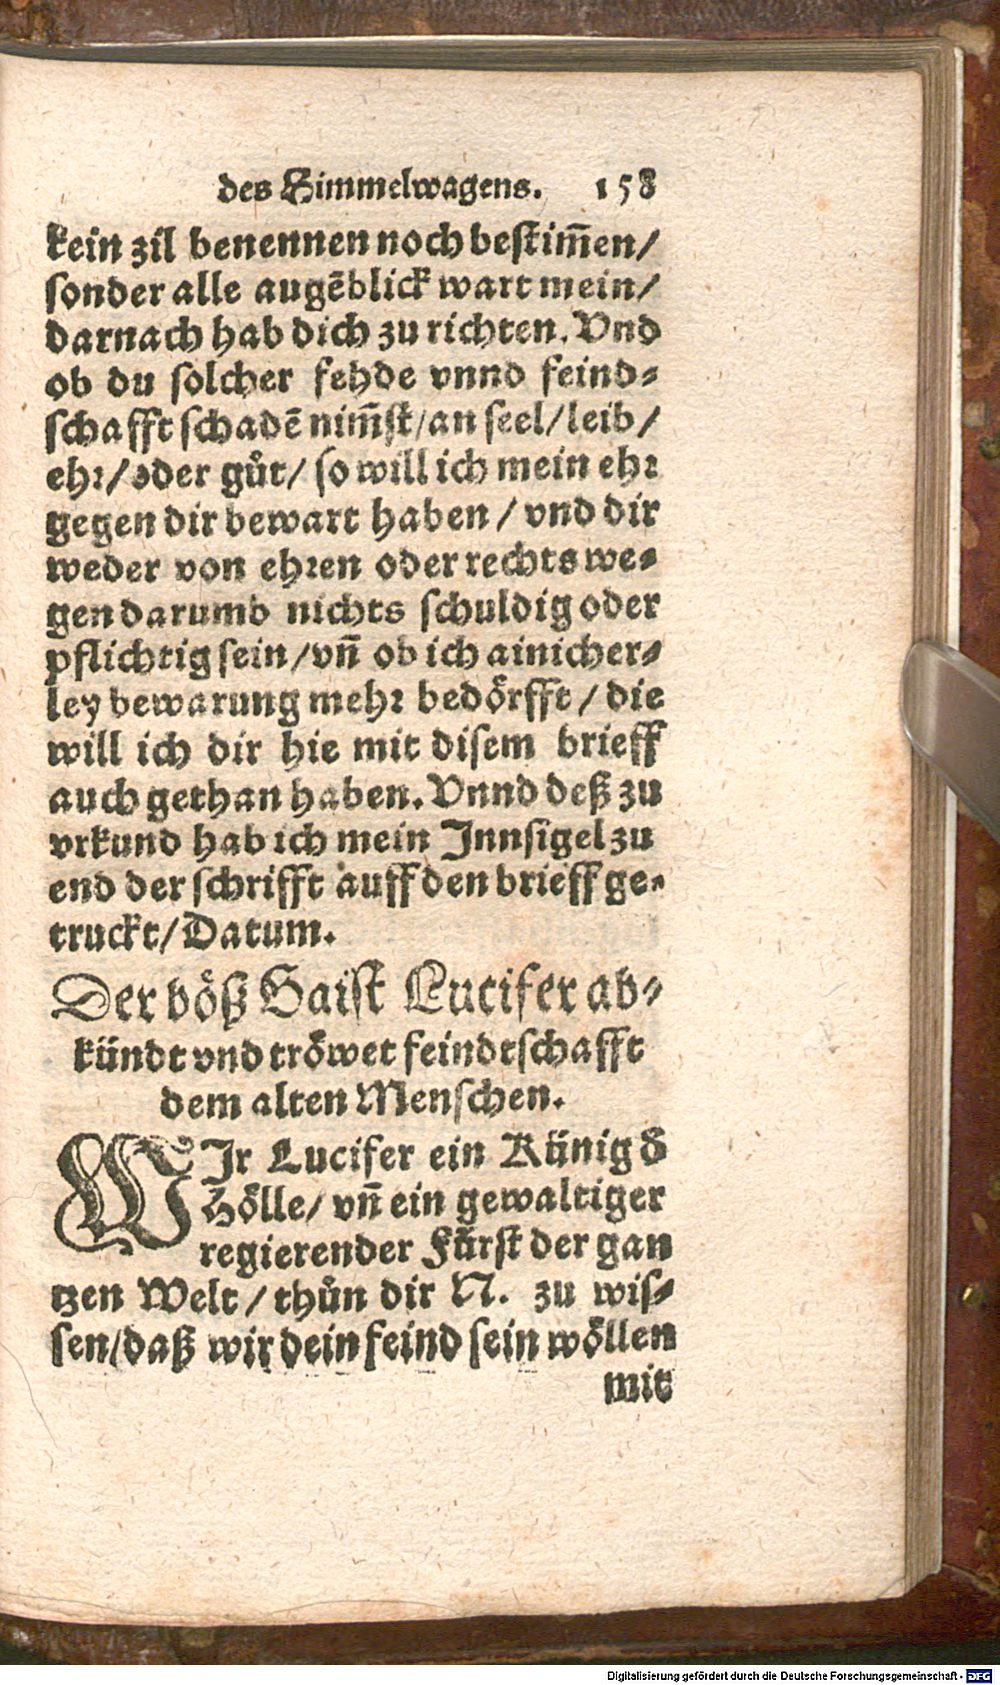 des Himmelwagens. 158
kein zil benennen noch bestim̃en/
sonder alle augẽblick wart mein/
darnach hab dich zu richten. Vnd
ob du solcher fehde vnnd feind-
schafft schadẽ nim̃st/an seel/leib/
ehr/oder gůt/ so will ich mein ehr
gegen dir bewart haben/ vnd dir
weder von ehren oder rechts we-
gen darumb nichts schuldig oder
pflichtig sein/vñ ob ich ainicher-
ley bewarung mehr bedörfft/ die
will ich dir hie mit disem brieff
auch gethan haben. Vnnd deß zu
vrkund hab ich mein Innsigel zu
end der schrifft auff den brieff ge-
truckt/Datum.
Der böß Gaist Lucifer ab-
kündt vnd tröwet feindtschafft
dem alten Menschen.
WIr Lucifer ein Künig d̕
Hölle/ vñ ein gewaltiger
regierender Fürst der gan
tzen Welt/ thůn dir N. zu wis-
sen/daß wir dein feind sein wöllen
mit
Digitalisierung gefördert durch die Deutsche Forschungsgemeinschaft - DFG